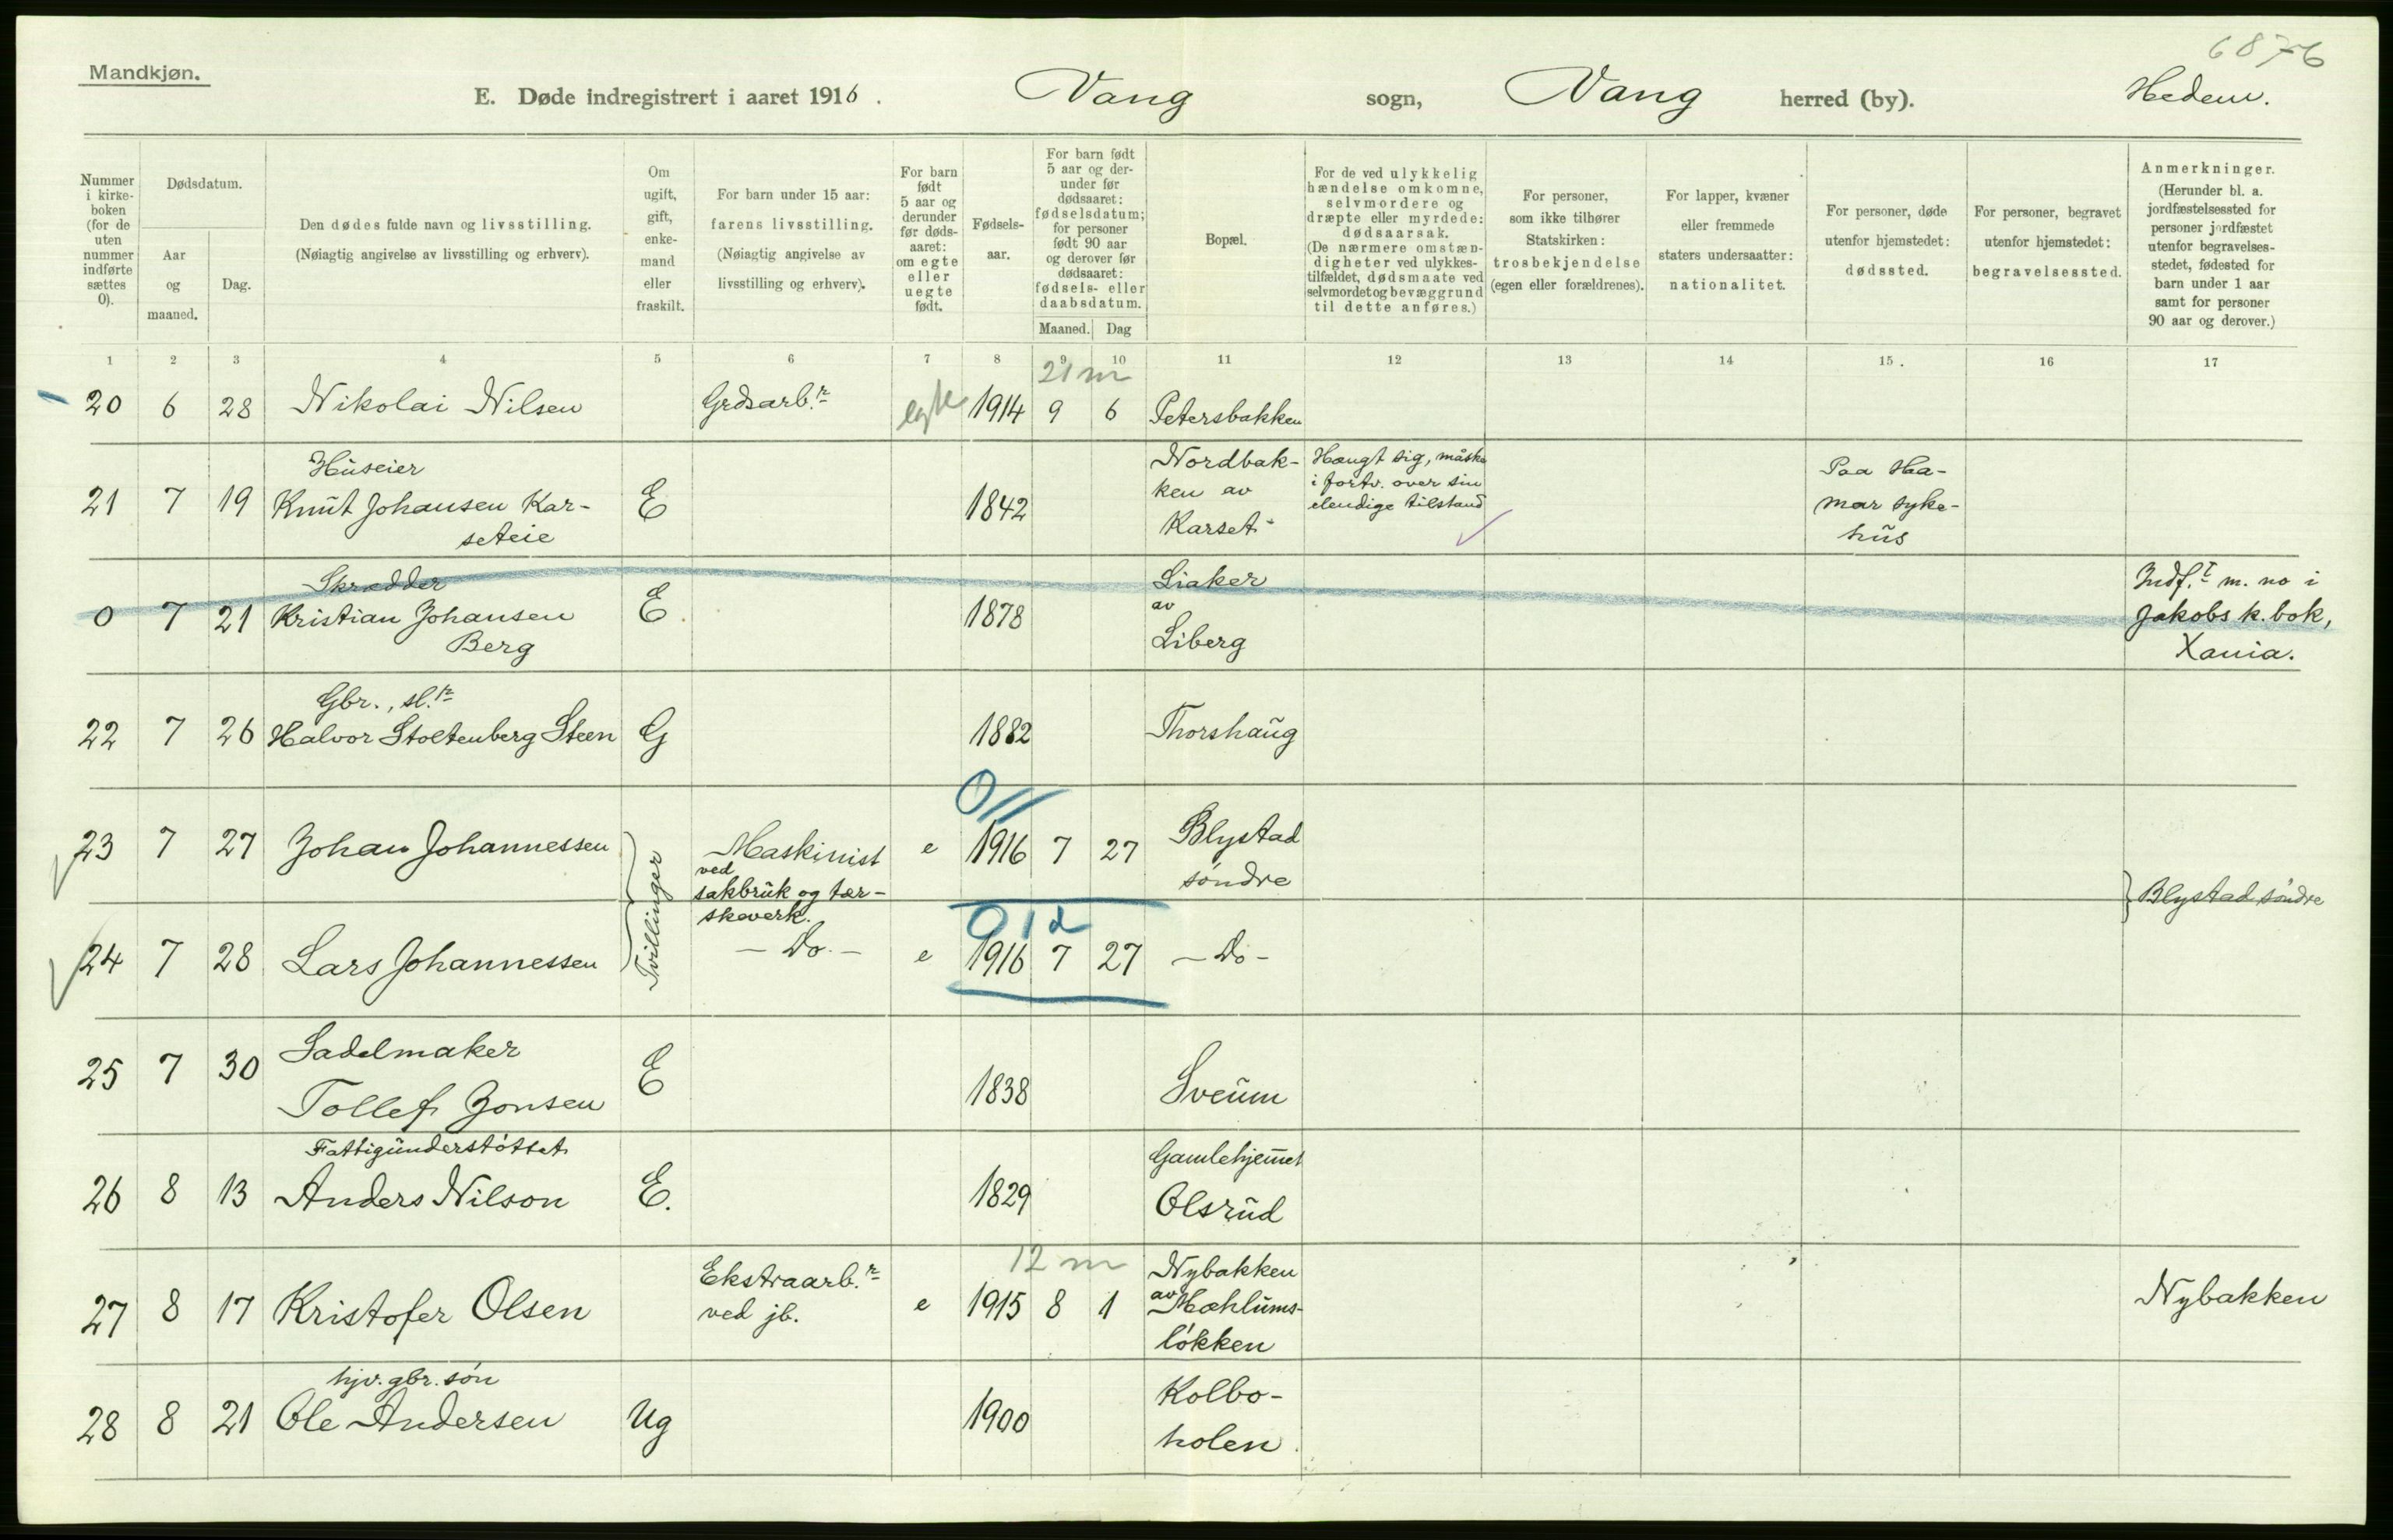 6876
Mandkjøn.
E. Døde indregistrert i aaret 1916. Vang sogn, Vang herred (by). Hedem.
Nummer i kirke-boken (for de uten nummer indførte sættes 0).
Dødsdatum.
Aar og maaned.
Dag.
Den dødes fulde navn og livsstilling.
(Nøiagtig angivelse av livsstilling og erhverv).
Om ugift, gift, enke-mand eller fraskilt.
For barn under 15 aar: farens livsstilling.
(Nøiagtig angivelse av livsstilling og erhverv).
For barn født 5 aar og derunder før døds-aaret: om egte eller uegte født.
Fødsels-aar.
For barn født 5 aar og der-under før dødsaaret: fødselsdatum; for personer født 90 aar og derover før dødsaaret: fødsels- eller daabsdatum.
Maaned. Dag
Bopæl.
For de ved ulykkelig hændelse omkomne, selvmordere og dræpte eller myrdede: dødsaarsak.
(De nærmere omstæn-digheter ved ulykkes-tilfældet, dødsmaate ved selvmordet og bevæggrund til dette anføres.)
For personer, som ikke tilhører Statskirken: trosbekjendelse (egen eller forældrenes).
For lapper, kvæner eller fremmede staters undersaatter: nationalitet.
For personer, døde utenfor hjemstedet: dødssted.
For personer, begravet utenfor hjemstedet: begravelsessted.
Anmerkninger.
(Herunder bl. a. jordfæstelsessted for personer jordfæstet utenfor begravelses-stedet, fødested for barn under 1 aar samt for personer 90 aar og derover.)
1 2 3 4 5 6 7 8 9 10 11 12 13 14 15. 16 17
21 m
20 6 28 Nikolai Nilsen Grdsarb.r egte 1914 9 6 Petersbakken
Huseier
21 7 19 Knut Johansen Kar-
seteie
E 1842
Nordbak-
ken av
Karset
Hængt sig, måske
i fortv. over sin
elendige tilstand
Paa Ha-
mar syke-
hus
Skrædder
0 7 21 Kristian Johansen
Berg
E 1878
Liaker
av
Liberg
Indf.t m. no i
Jakobs k. bok,
Xania.
Gbr., sl.r
22 7 26 Halvor Stoltenberg Steen G 1882 Thorshaug
0
23 7 27 Johan Johannessen
Tvillinger
Maskinist
ved
sakbruk og tær-
skeverk.
e 1916 7 27
Blystad
søndre
} Blystad søndre
0 1 d
24 7 28 Lars Johannessen - Do - e 1916 7 27 - Do -
Sadelmaker
25 7 30 Tollef Jonsen E 1838 Sveum
Fattigunderstøttet
26 8 13 Anders Nilson E. 1829
Gamlehjemmet
Olsrud
12 m
27 8 17 Kristofer Olsen
Ekstraarb.r
ved jb.
e 1915 8 1
Nybakken
av Mæhlums-
løkken
Nybakken
hjv. gbr. søn
28 8 21 Ole Andersen Ug 1900
Kolbo-
holen